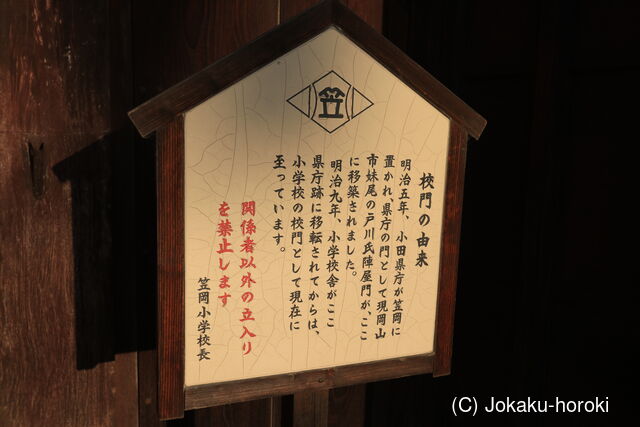 笠
校門の由来
明治五年、小田県庁が笠岡に
置かれ、県庁の門として現岡山
市妹尾の戸川氏陣屋門が、ここ
に移築されました。
明治九年、小学校舎がここ
県庁跡に移転されてからは、
小学校の校門として現在に
至っています。
関係者以外の立入り
を禁止します
笠岡小学校長
(C) Jokaku-horoki